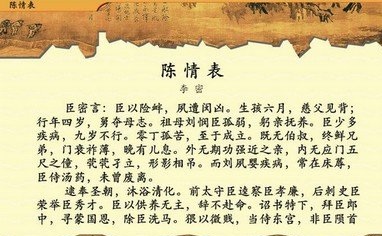 陈情表
陈情表
李密
臣密言：臣以险衅，夙遭闵凶。生孩六月，慈父见背；
行年四岁，舅夺母志。祖母刘悯臣孤弱，躬亲抚养。臣少多
疾病，九岁不行。零丁孤苦，至于成立。既无伯叔，终鲜兄
弟，门衰祚薄，晚有儿息。外无期功强近之亲，内无应门五
尺之僮，茕茕孑立，形影相吊。而刘夙婴疾病，常在床蓐，
臣侍汤药，未曾废离。
逮奉圣朝，沐浴清化。前太守臣逵察臣孝廉，后刺史臣
荣举臣秀才。臣以供养无主，辞不赴命。诏书特下，拜臣郎
中，寻蒙国恩，除臣洗马。猥以微贱，当侍东宫，非臣陨首